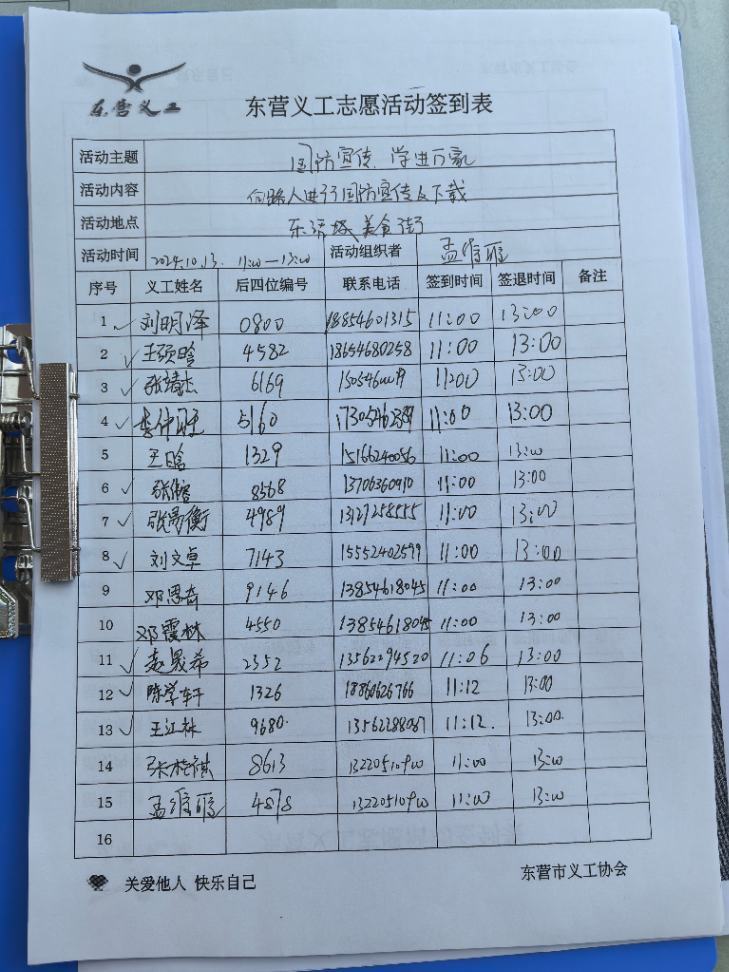 东营义工
东营义工志愿活动签到表
活动主题 国防宣传 学进万家
活动内容 向路人进行国防宣传及下载
活动地点 美食街
活动时间 2024.10.13. 11:00—13:00 活动组织者 孟维雁
序号 义工姓名 后四位编号 联系电话 签到时间 签退时间 备注
1 ✓ 刘明泽 0800 18854601315 11:00 13:00
2 ✓ 4582 18654680258 11:00 13:00
3 ✓ 张靖杰 6169 11:00 13:00
4 ✓ 5160 11:00 13:00
5 王晗 1329 15166240056 11:00 13:00
6 ✓ 8568 13706360910 11:00 13:00
7 ✓ 4989 11:00 13:00
8 ✓ 刘文卓 7143 15552402599 11:00 13:00
9 邓思奇 9146 13854618045 11:00 13:00
10 邓霞林 4550 13854618045 11:00 13:00
11 ✓ 2352 13562294520 11:06 13:00
12 ✓ 陈学轩 1326 11:12 13:00
13 ✓ 王江林 9680. 11:12. 13:00.
14 8613 11:00 13:00
15 孟维雁 4878 11:00 13:00
16
关爱他人 快乐自己 东营市义工协会